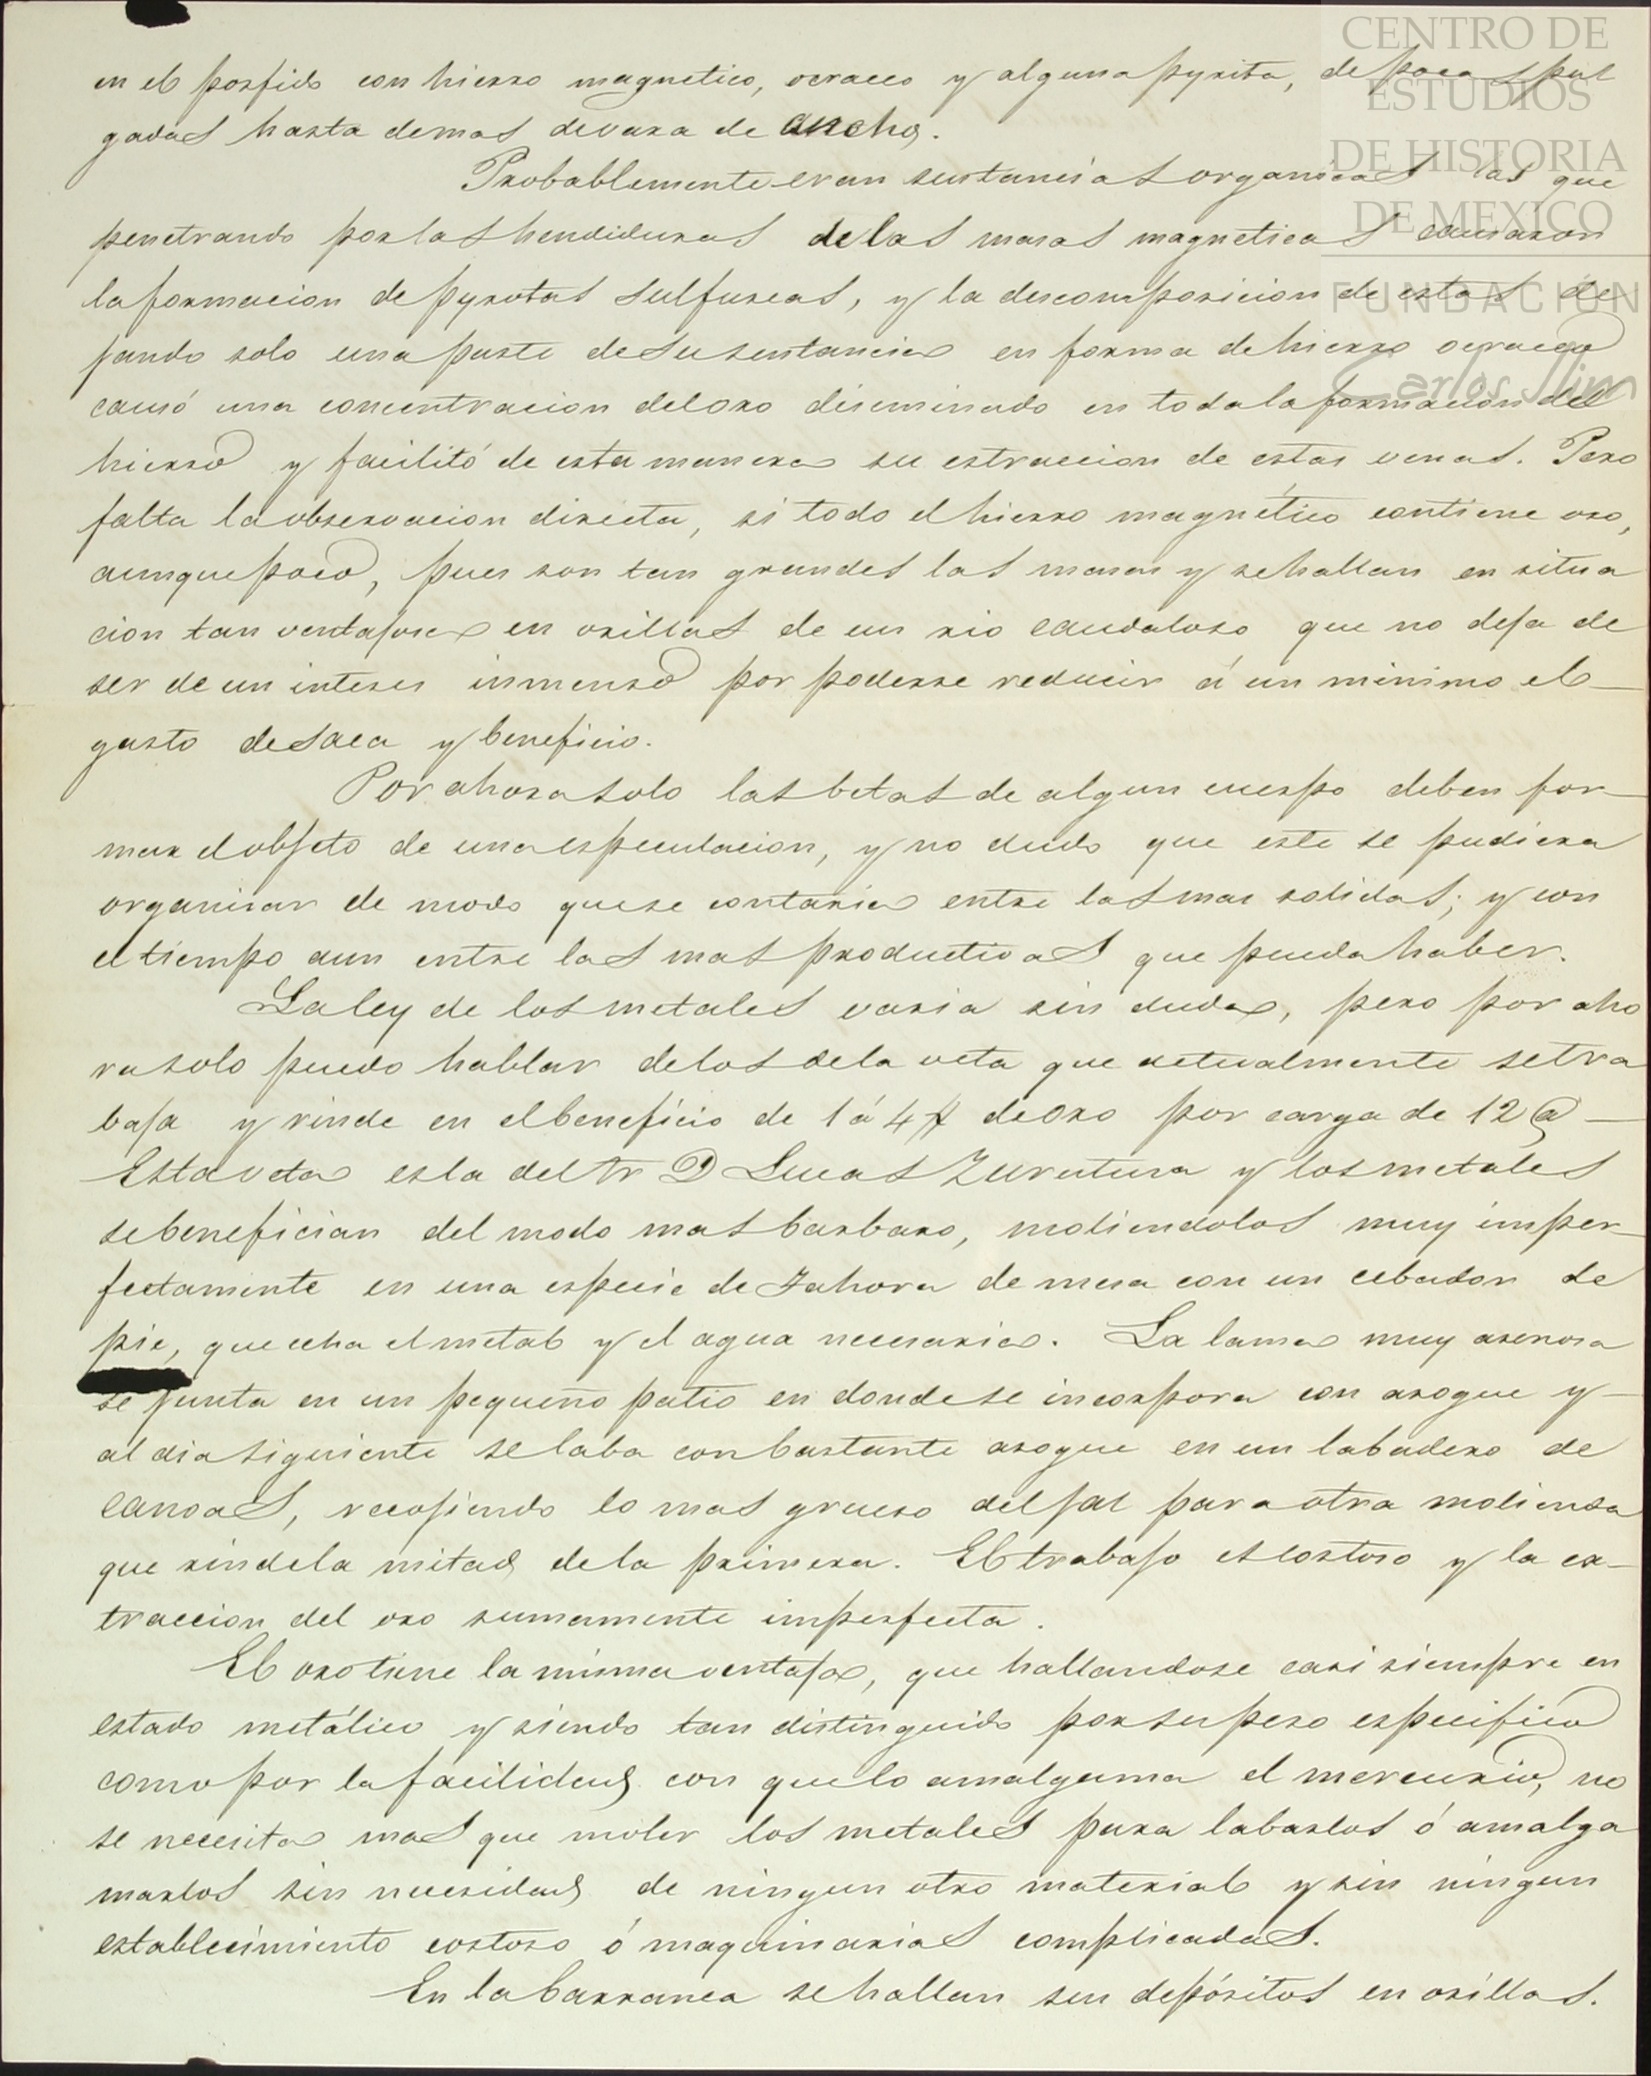 en el porfido con hierro magnetico, ocraceo y alguna pyrita, de pocas pul
gadas hasta demas devara de ancho.
Probablemente eran sustancias organicas las que
penetrando por las hendiduras de las masas magneticas causaron
la formacion de pyrotas sulfureas, y la descomposicion de estas de
jando solo una parte de su sustancia en forma de hierro ocraceo
causó una concentracion del oro diseminado en toda la formacion del
hierro y facilitó de esta manera su estraccion de estas venas. Pero
falta la observacion directa, si todo el hierro magnético contiene oro,
aunque poco, pues son tan grandes las masas y se hallan en situa
cion tan ventajosa en orillas de un rio caudaloso que no deja de
ser de un interes inmenso por poderse reducir á un minimo el
gasto de saca y beneficio.
Por ahora solo las betas de algun cuerpo deben for-
mar el objeto de una especulacion, y no dudo que este se pudiera
organisar de modo que se contaria entre las mas solidas; y con
el tiempo aun entre las mas productivas que pueda haber.
La ley de los metales varia sin duda, pero por aho
ra solo puedo hablar de los de la veta que actualmente se tra
baja y rinde en el beneficio de 1 á 4 de oro por carga de 12 @
Esta veta es la del Sr D Lucas Zurutuza y los metales
se benefician del modo mas barbaro, moliendolos muy imper-
fectamente en una especie de Tahona de mesa con un cebador de
pie, que echa el metal y el agua necesaria. La lama muy arenosa
se junta en un pequeño patio en donde se incorpora con asogue y
al dia siguiente se laba con bastante asogue en un labadero de
canoas, recojiendo lo mas grueso del jal para otra molienda
que rinde la mitad de la primera. El trabajo es costoso y la ex-
traccion del oro sumamente imperfecta.
El oro tiene la misma ventaja, que hallandose casi siempre en
estado metálico y siendo tan distinguido por su peso especifico
como por la facilidad con que lo amalgama el mercurio, no
se necesita mas que moler los metales para labarlos ó amalga
marlos sin necesidad de ningun otro material y sin ningun
establecimiento costoso ó maquinarias complicadas.
En la barranca se hallan sus depósitos en orillas.
CENTRO DE
ESTUDIOS
DE HISTORIA
DE MEXICO
FUNDACIÓN
Carlos Slim